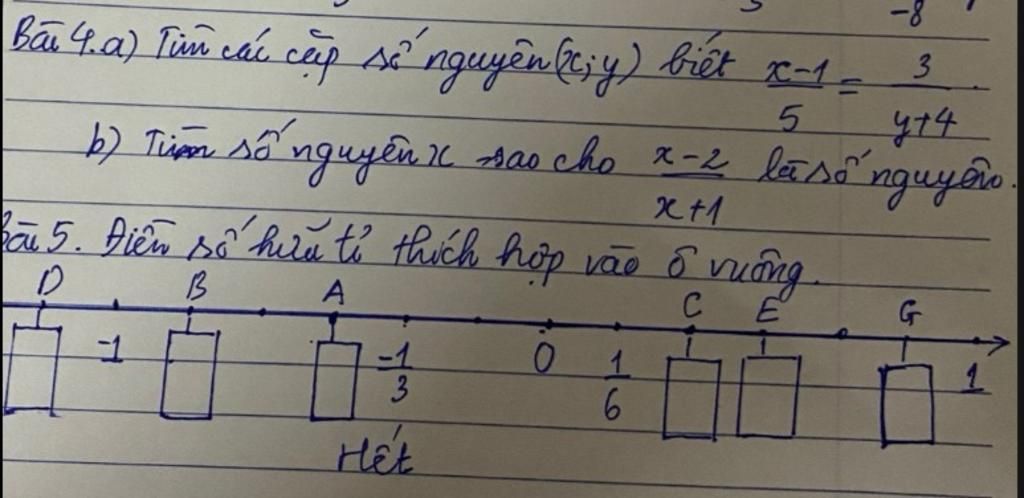 -8
Bài 4.a) Tìm các cặp số nguyên (x;y) biết (x-1)/5 = 3/(y+4).
b) Tìm số nguyên x sao cho (x-2)/(x+1) là số nguyên.
Bài 5. Điền số hữu tỉ thích hợp vào ô vuông.
D B A C E G
-1 -1/3 0 1/6 1
Hết